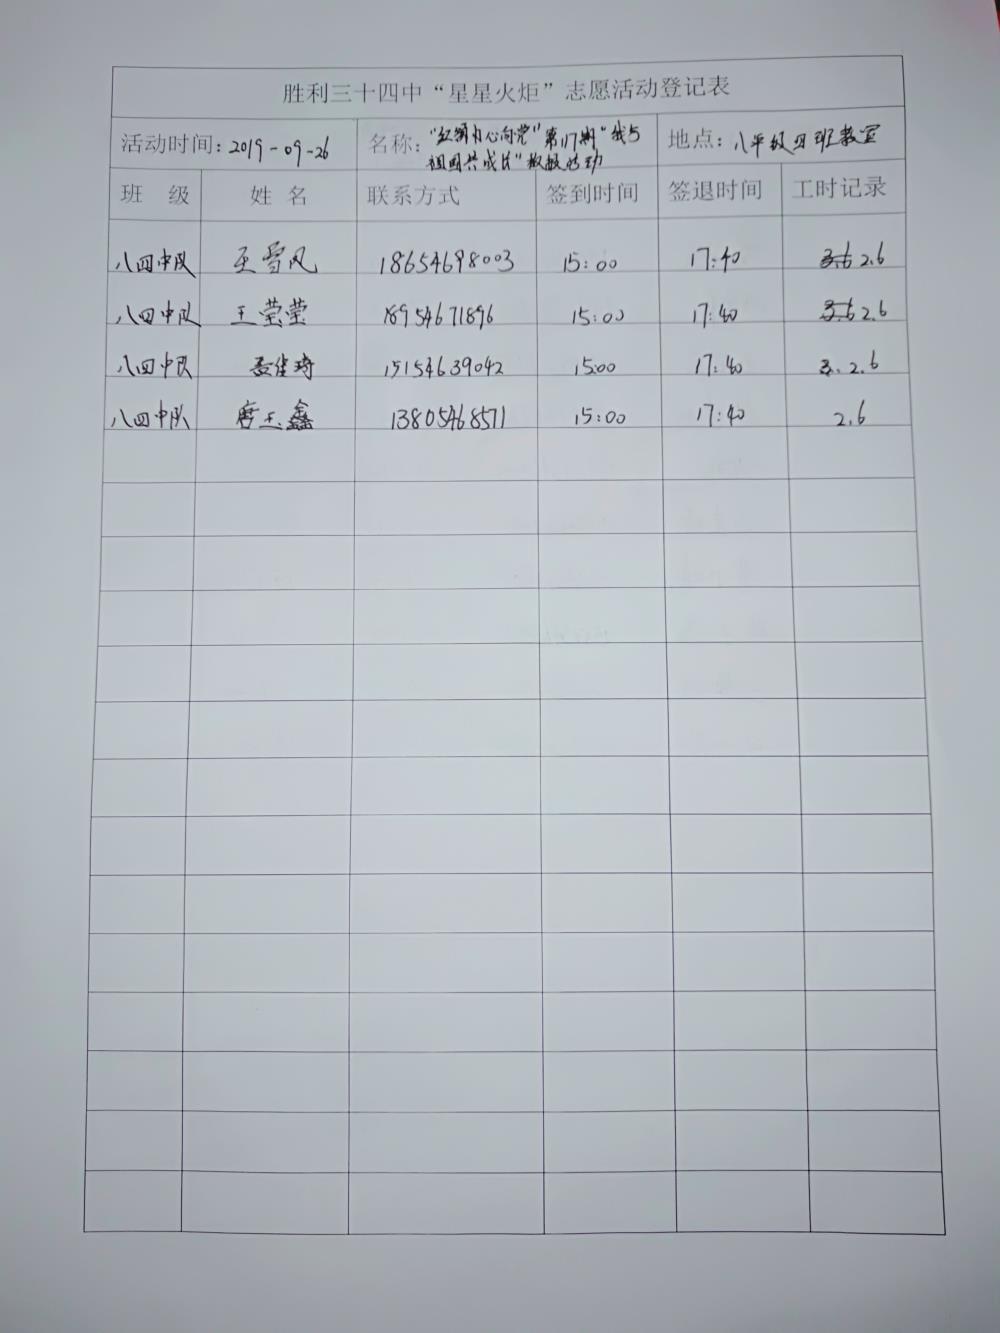 胜利三十四中“星星火炬”志愿活动登记表
活动时间：2019-09-26 名称：“红领巾心向党”第117期“我与祖国共成长” 地点：八年级四班教室
班 级 姓 名 联系方式 签到时间 签退时间 工时记录
八四中队 王雪风 18654698003 15:00 17:40 3.6 2.6
八四中队 王莹莹 18954671896 15:00 17:40 3.6 2.6
八四中队 孟佳琦 15154639042 15:00 17:40 3. 2.6
八四中队 唐玉鑫 13805468571 15:00 17:40 2.6